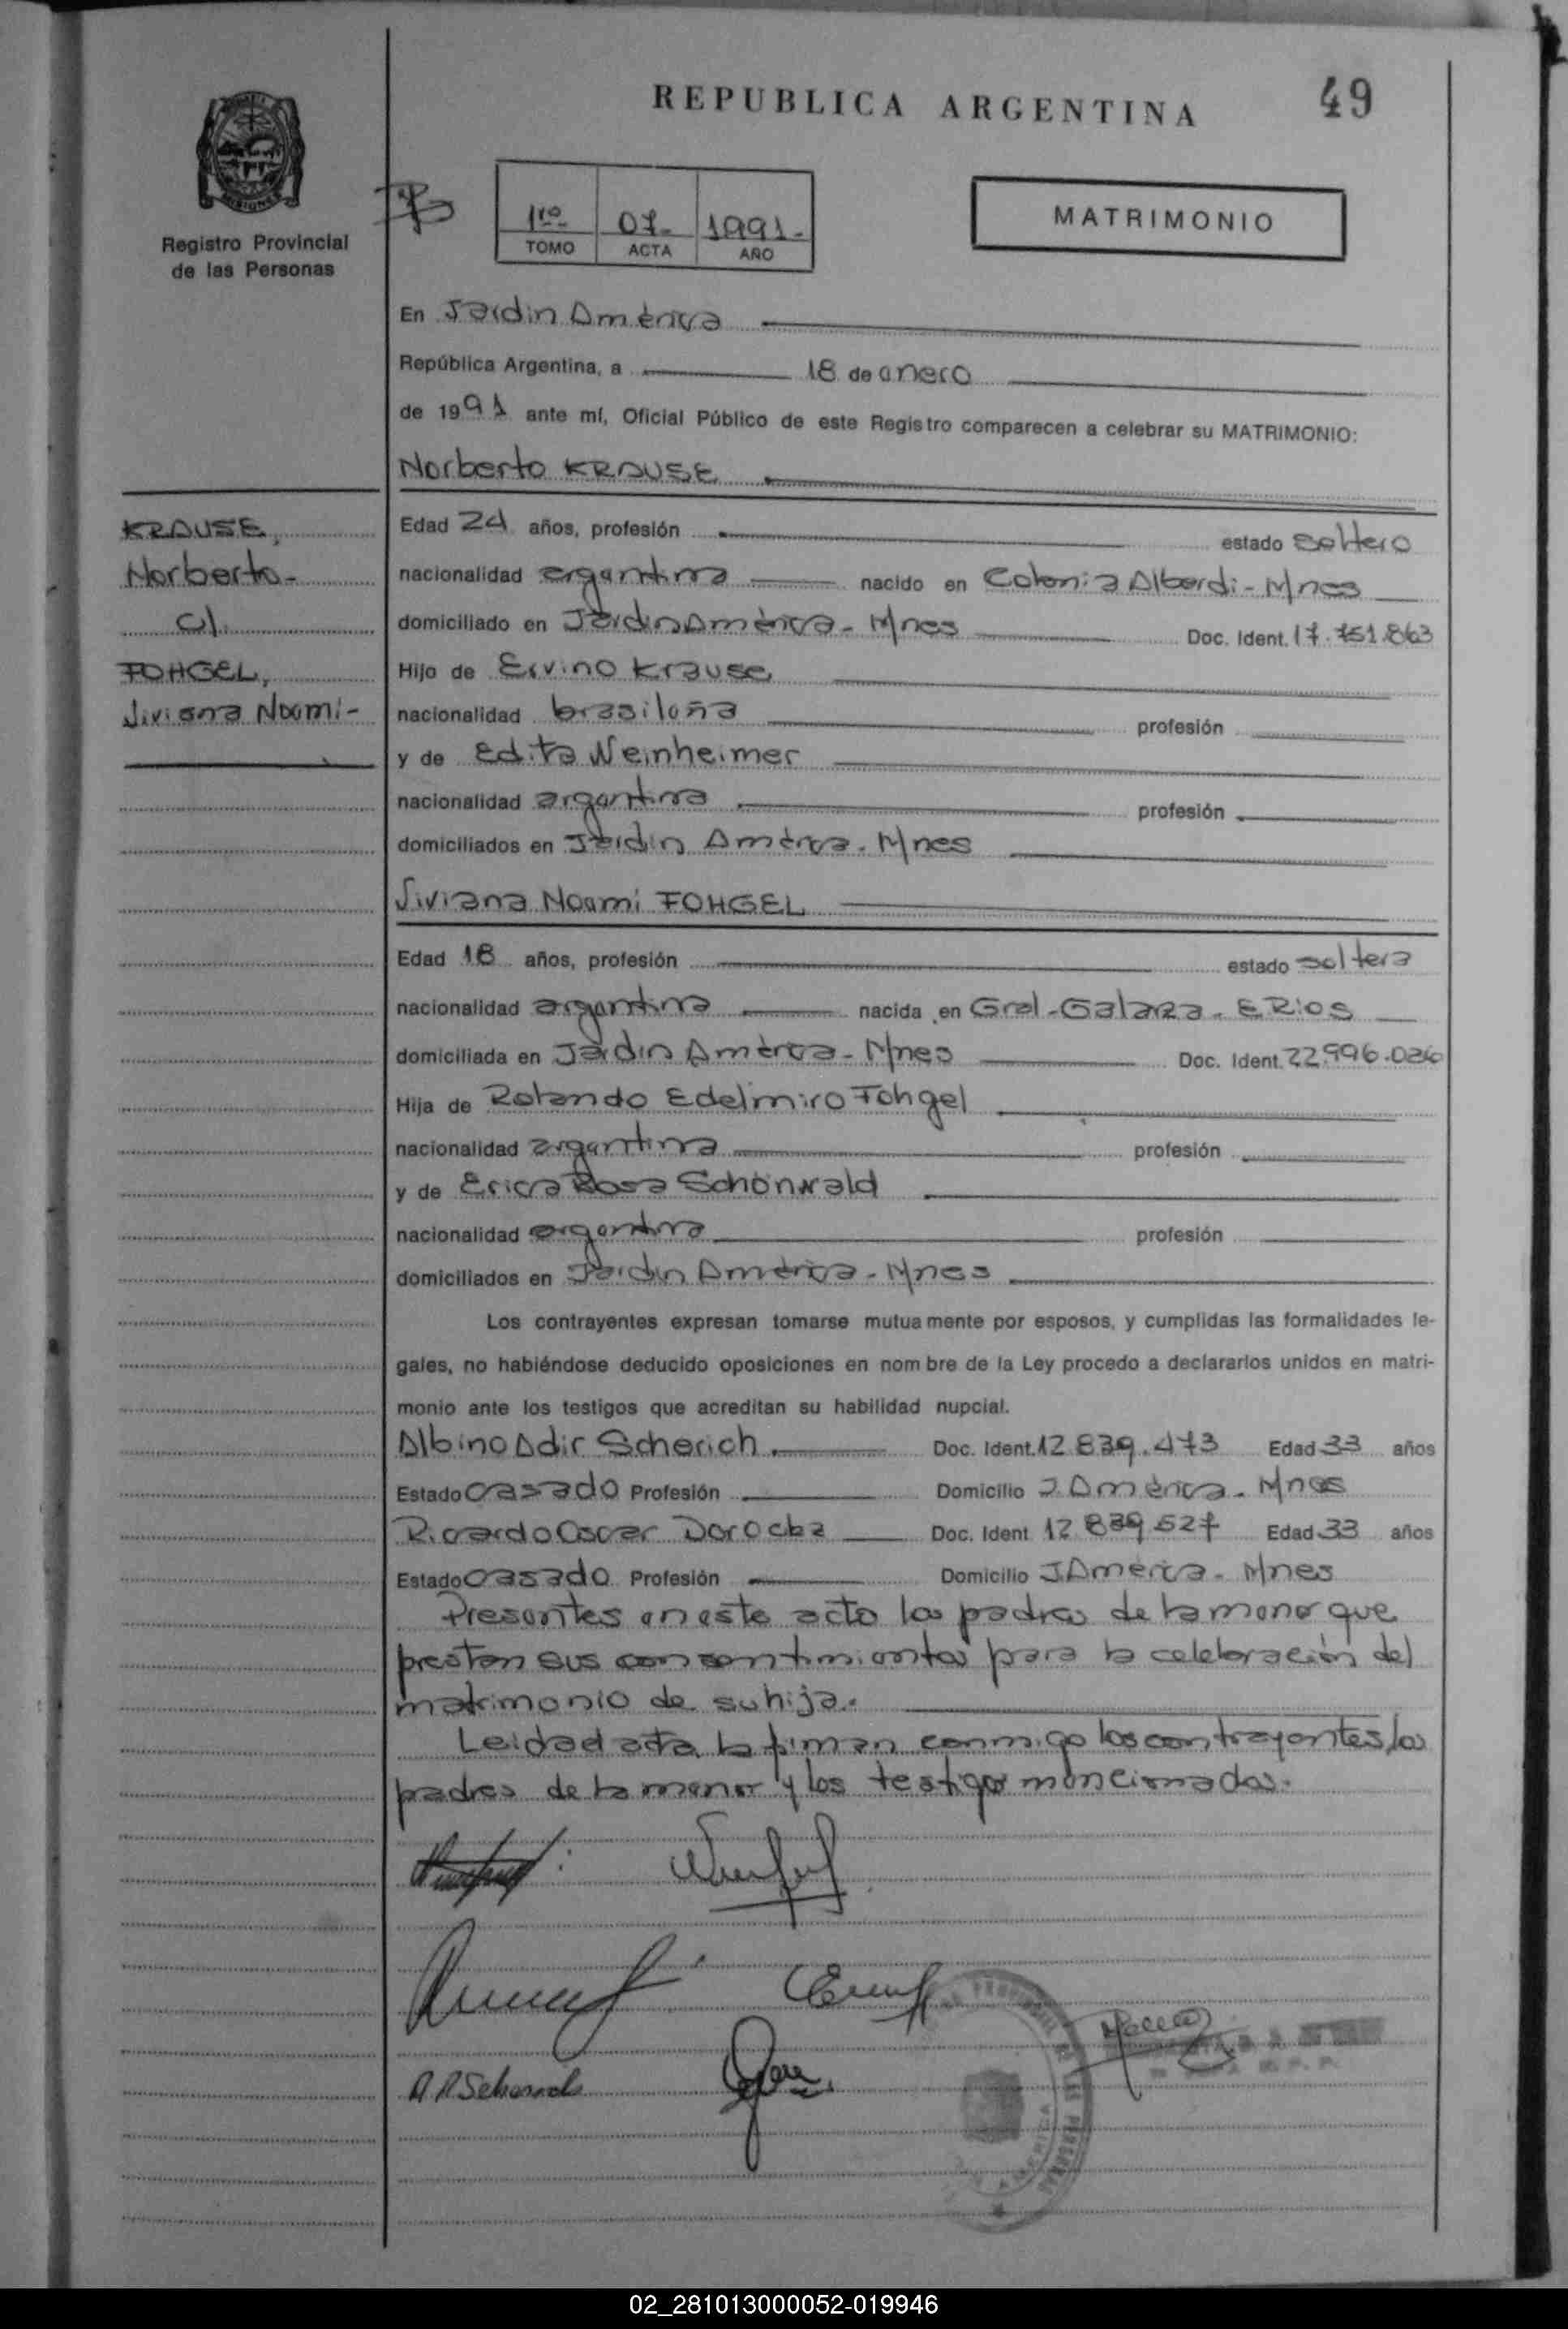 REPUBLICA ARGENTINA
49
MISIONES
Registro Provincial
de las Personas
1ro 07- 1991-
TOMO ACTA AÑO
MATRIMONIO
En Jardin América
República Argentina, a 18 de enero
de 1991 ante mí, Oficial Público de este Registro comparecen a celebrar su MATRIMONIO:
Norberto KRAUSE
KRAUSE,
Norberto-
c/.
FOHGEL,
Viviana Noemi-
Edad 24 años, profesión estado soltero
nacionalidad argentina nacido en Colonia Alberdi - Mnes
domiciliado en Jardin América - Mnes Doc. Ident. 17.751.863
Hijo de Ervino Krause
nacionalidad brasileña profesión
y de Edita Weinheimer
nacionalidad argentina profesión
domiciliados en Jardin América - Mnes
Viviana Noemi FOHGEL
Edad 18 años, profesión estado soltera
nacionalidad argentina nacida en Gral - Galarza - E Rios
domiciliada en Jardin América - Mnes Doc. Ident. 22.996.026
Hija de Rolando Edelmiro Fohgel
nacionalidad argentina profesión
y de Erica Rosa Schönwald
nacionalidad argentina profesión
domiciliados en Jardin América - Mnes
Los contrayentes expresan tomarse mutuamente por esposos, y cumplidas las formalidades le-
gales, no habiéndose deducido oposiciones en nombre de la Ley procedo a declararlos unidos en matri-
monio ante los testigos que acreditan su habilidad nupcial.
Albino Adir Scherich Doc. Ident. 12 839.473 Edad 33 años
Estado casado Profesión Domicilio J. América - Mnes
Ricardo Oscar Dorocka Doc. Ident 12 839 527 Edad 33 años
Estado casado Profesión Domicilio J América - Mnes
Presentes en este acto los padres de la menor que
prestan sus consentimientos para la celebración del
matrimonio de su hija.
Leida el acta la firman conmigo los contrayentes, los
padres de la menor y los testigos mencionados.
A A Scherich
02_281013000052-019946